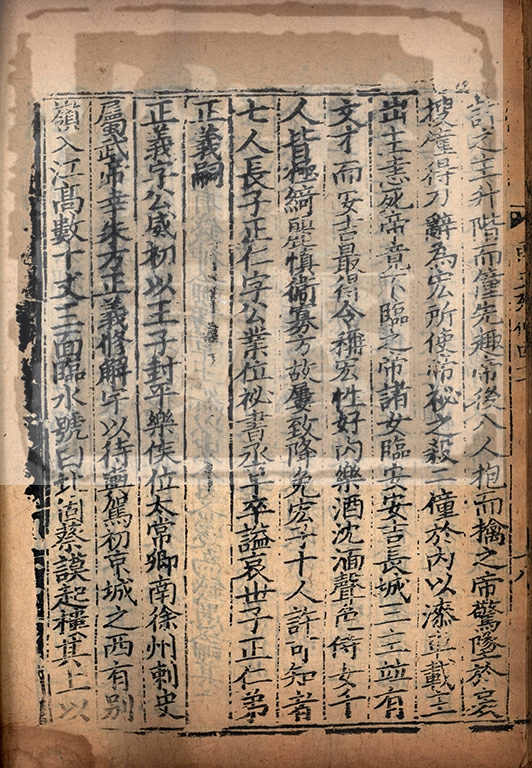 許之主升階而僮先趣帝後八人抱而擒之帝驚墜於扆
搜僮得刀辭為宏所使帝祕之殺二僮於內以漆車載主
出主恚死帝竟不臨之帝諸女臨安安吉長城三主並有
文才而安吉最得令稱宏性好內樂酒沈湎聲色侍女千
人皆極綺麗慎衛寡方故屢致降免宏子十人許可知者
七人長子正仁字公業位祕書丞早卒謚哀世子正仁弟
正義嗣
正義字公威初以王子封平樂侯位太常卿南徐州刺史
屬武帝幸朱方正義修解宇以待輿駕初京城之西有別
嶺入江高數十丈三面臨水號曰北固蔡謨起樓其上以